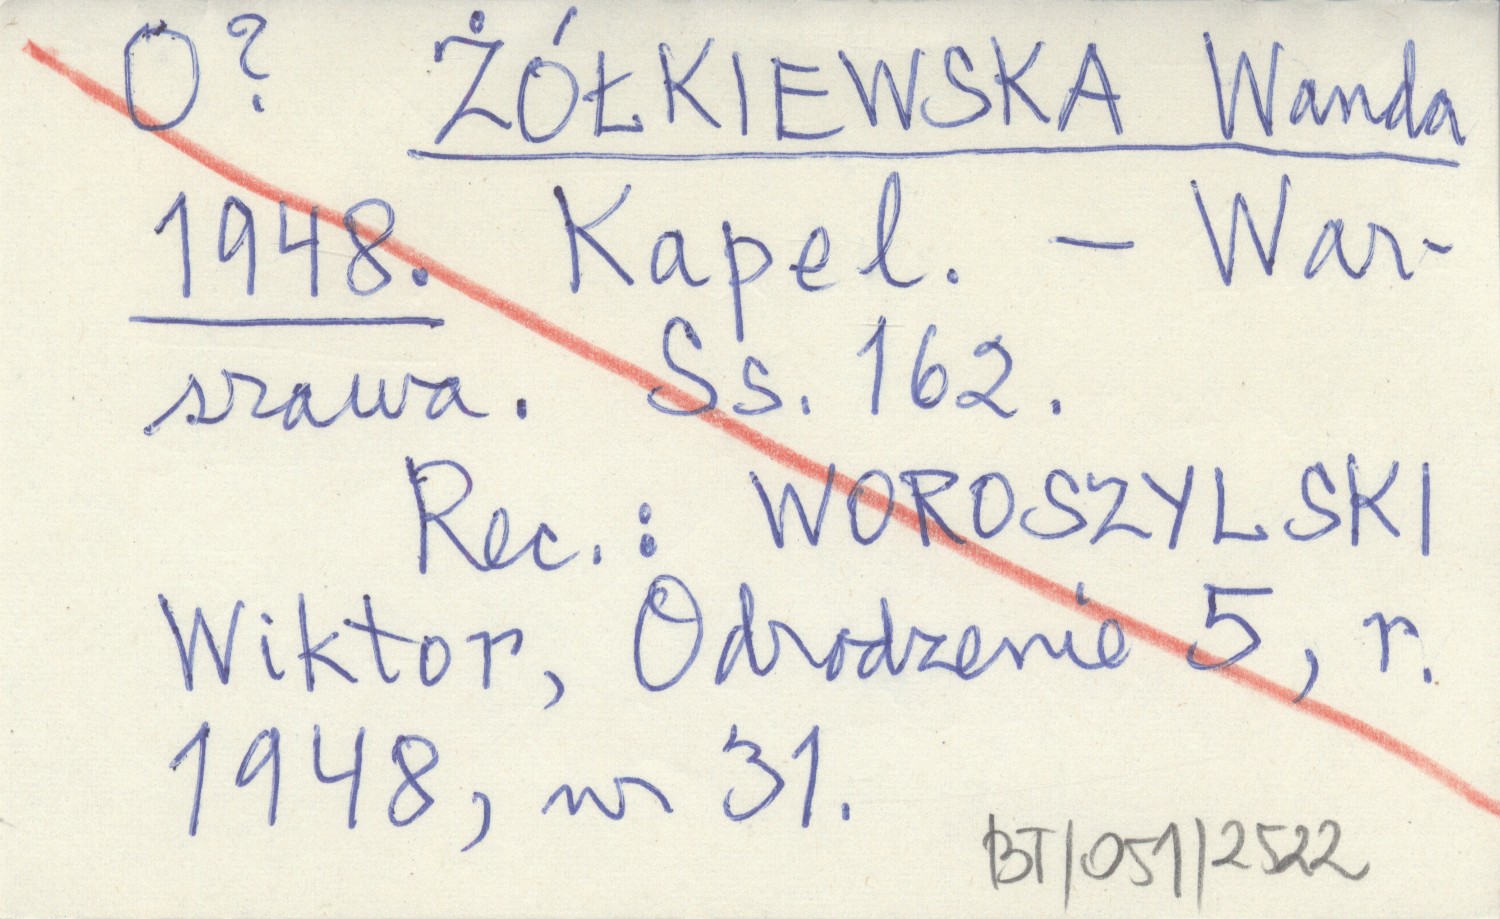 O? ŻÓŁKIEWSKA Wanda
1948. Kapel. – War-
szawa. Ss. 162.
Rec.: WOROSZYLSKI
Wiktor, Odrodzenie 5, r.
1948, nr 31.
BT/051/2522